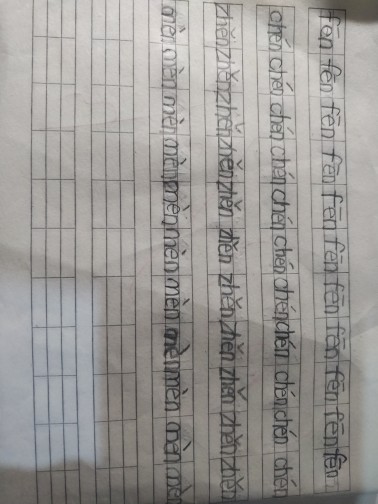 fēn fēn fēn fēn fēn fēn fēn fēn fēn fēn fēn
chén chén chén chén chén chén chén chén chén chén chén
zhěn zhěn zhěn zhěn zhěn zhěn zhěn zhěn zhěn zhěn zhěn
mèn mèn mèn mèn mèn mèn mèn mèn mèn mèn mèn mèn